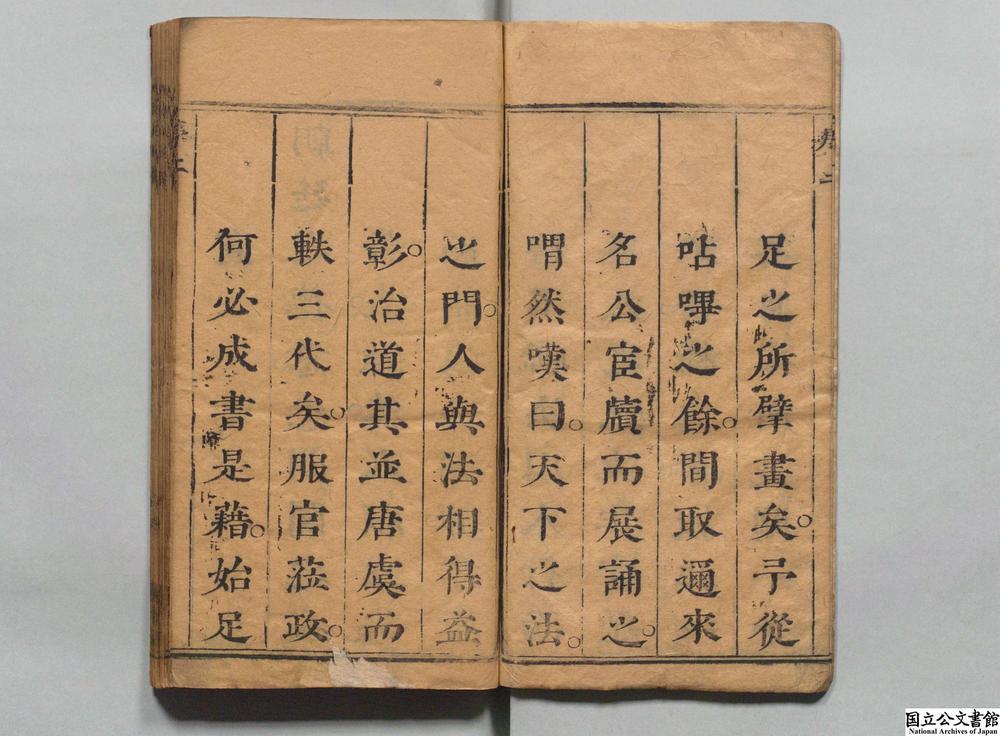 足之所擘畫矣。予從
呫嗶之餘。間取邇來
名公宦牘而展誦之。
喟然嘆曰。天下之法。
之門。人與法相得益
彰。治道其並唐虞而
軼三代矣。服官蒞政。
何必成書是藉。始足
国立公文書館
National Archives of Japan